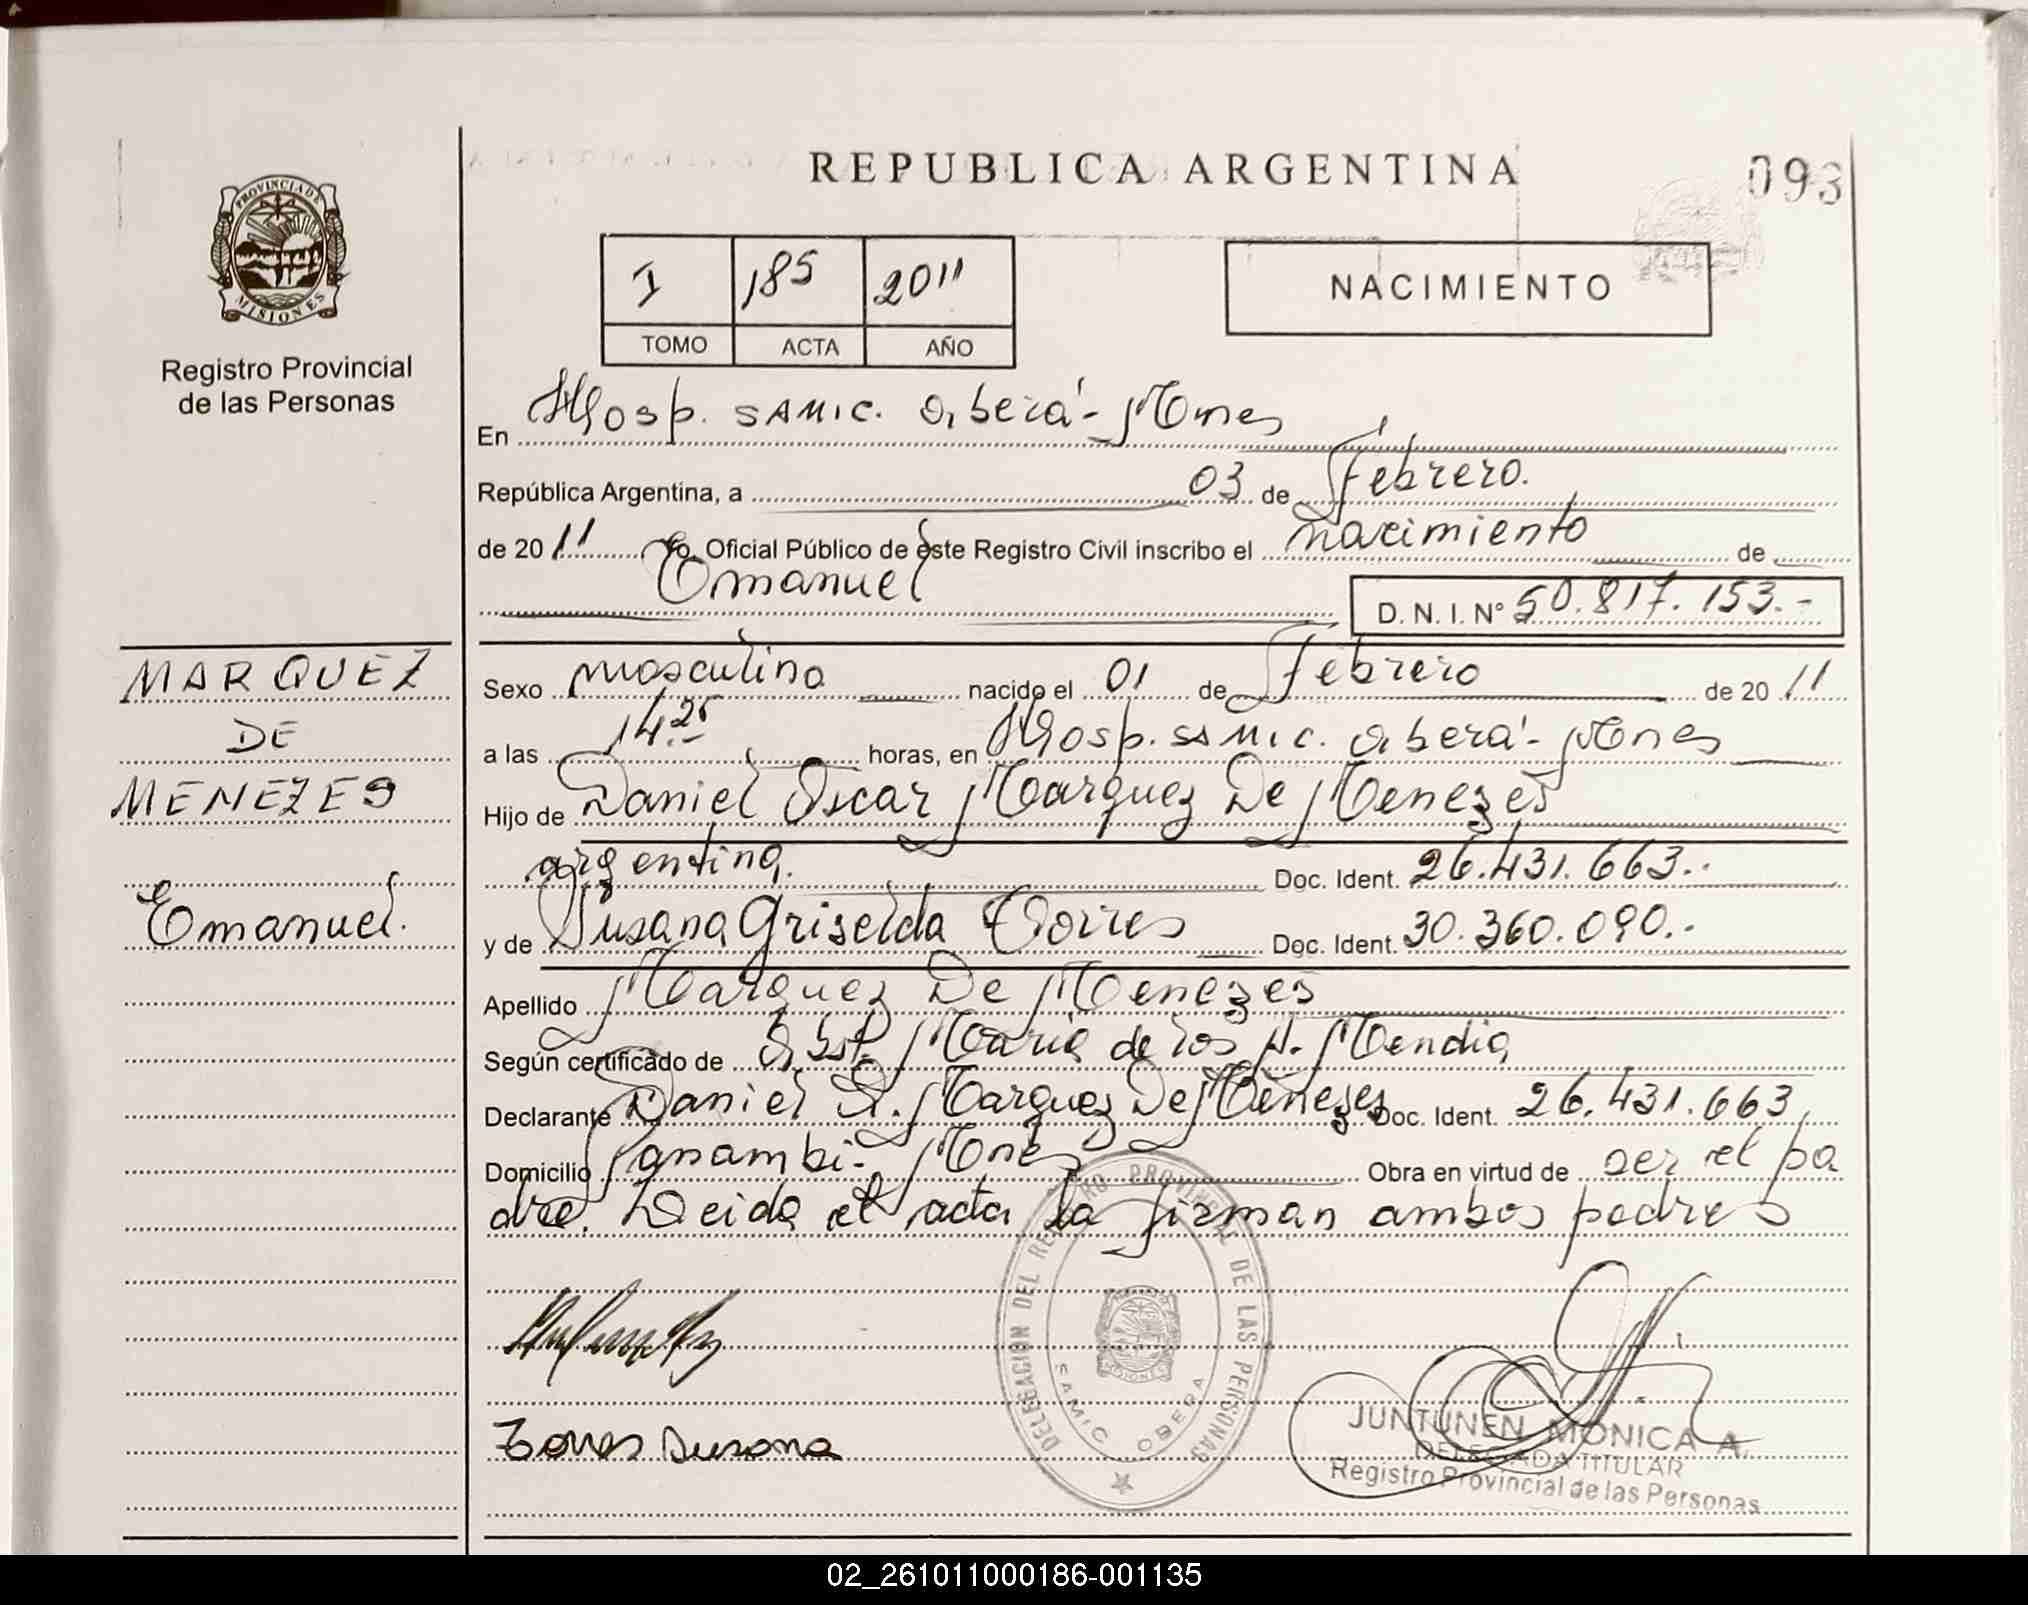 REPUBLICA ARGENTINA
093
PROVINCIA DE
MISIONES
Registro Provincial
de las Personas
I 185 2011
TOMO ACTA AÑO
NACIMIENTO
En Hosp. SAMIC. Oberá - Mnes
República Argentina, a 03 de Febrero.
de 2011 Yo, Oficial Público de este Registro Civil inscribo el nacimiento de
Emanuel
D. N. I. N° 50.817.153.-
MARQUEZ
DE
MENEZES
Emanuel.
Sexo masculino nacido el 01 de Febrero de 2011
a las 14.25 horas, en Hosp. SAMIC. Oberá - Mnes
Hijo de Daniel Oscar Marquez De Menezes
argentina. Doc. Ident. 26.431.663.-
y de Susana Griselda Torres Doc. Ident. 30.360.090.-
Apellido Marquez De Menezes
Según certificado de Obst. Maria de los A. Mendia
Declarante Daniel O. Marquez De Menezes Doc. Ident. 26.431.663
Domicilio Panambi - Mnes Obra en virtud de ser el pa
dre. Leida el acta la firman ambos padres
DELEGACION DEL REGISTRO PROVINCIAL DE LAS PERSONAS
SAMIC OBERA
Torres Susana
JUNTUNEN MONICA A.
DELEGADA TITULAR
Registro Provincial de las Personas
02_261011000186-001135